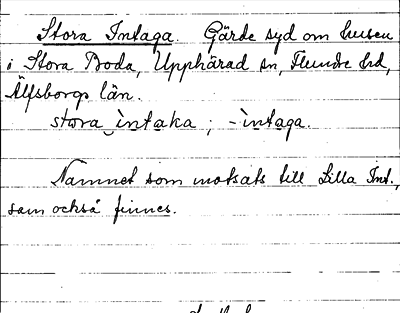 Stora Intaga. Gärde syd om husen
i Stora Boda, Upphärad sn, Flundre hd,
Älfsborgs län.
stora ‿ìntaka; -ìntaga.
Namnet som motsats till Lilla Int.,
som också finnes.